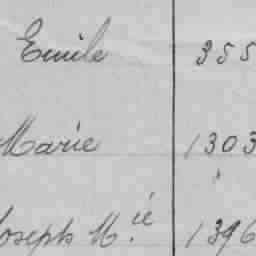 Emile 355
Marie 1303
Joseph M.ie 1396